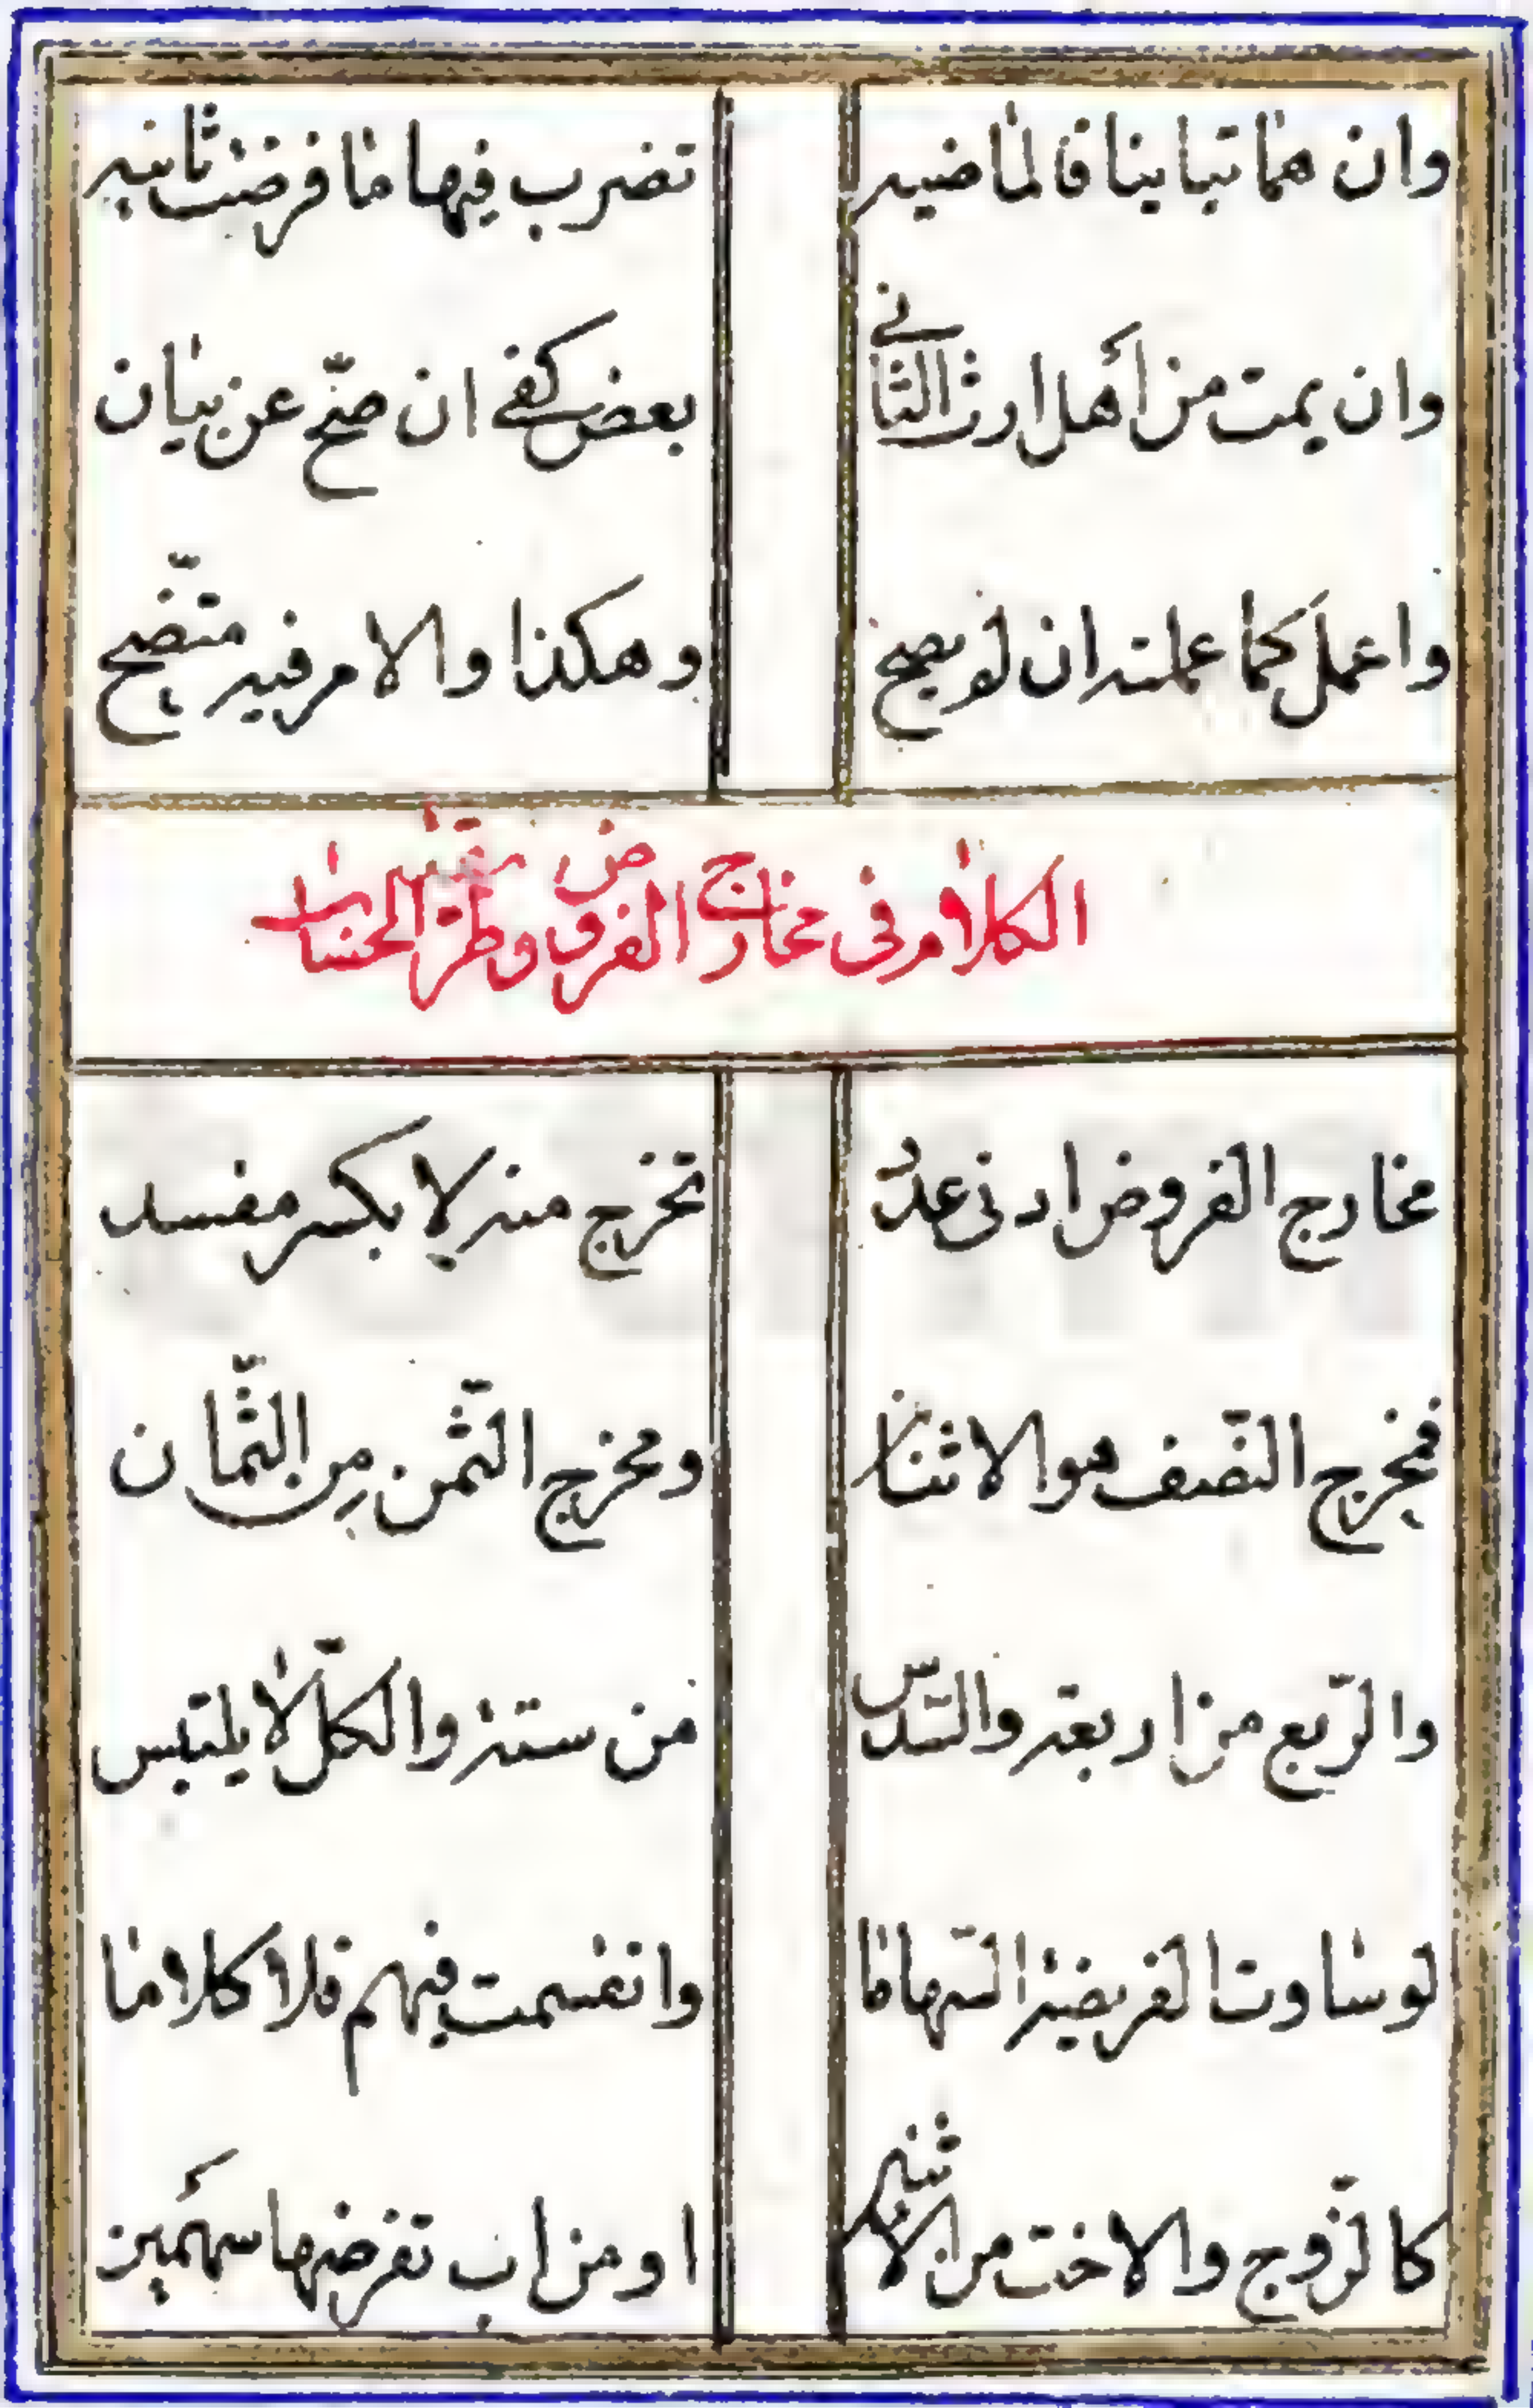 وان هما تباينا فالماضيه تضرب فيها ما فرضت ثانيه
وان يمت من أهل ارث الثاني بعض كفى ان صحّ عن بيان
واعمل كما عملته ان لو يصح وهكذا والامر فيه متّضح
الكلام فى مخارج الفروض وطرّ الحساب
مخارج الفروض ادنى عدد تخرج منه لا بكسر مفسد
فمخرج النّصف هو الاثنان ومخرج الثّمن من الثّمان
والرّبع من اربعة والسّدس من ستة والكلّ لا يلتبس
لو ساوت الفريضة السّهاما وانقسمت فيهم فلا كلاما
كالزّوج والاخت من الابوين او من اب تفرضها سهمين